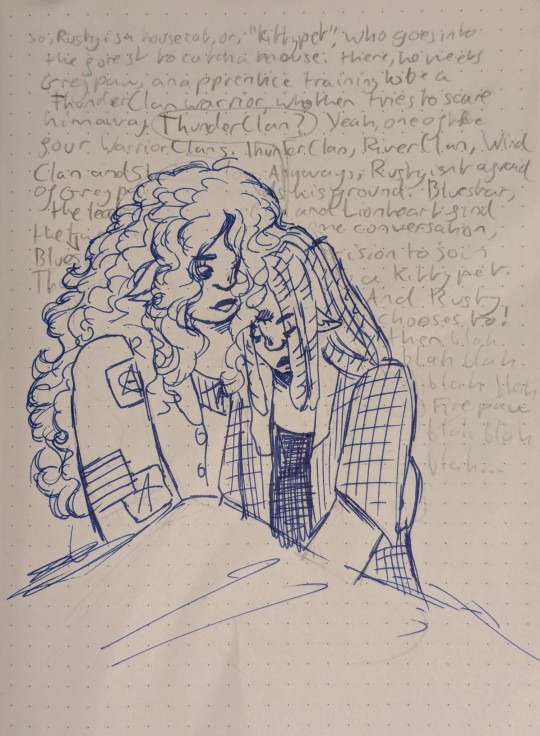 so, Rusty is a housecat, or, "Kittypet", who goes into
the forest to catch a mouse. there, he meets
Greypaw, an apprentice training to be a
ThunderClan warrior, who then tries to scare
him away. ThunderClan? Yeah, one of the
four Warrior Clans. ThunderClan, RiverClan, Wind
Clan and Sh Anyways, Rusty isn't afraid
of Greypa his ground. Bluestar,
the lea and Lionheart find
the conversation,
Blues ision to join
Th a Kittypet
And Rusty
chooses to!
then blah
blah blah
blah blah
Firepaw
blah blah
blah...